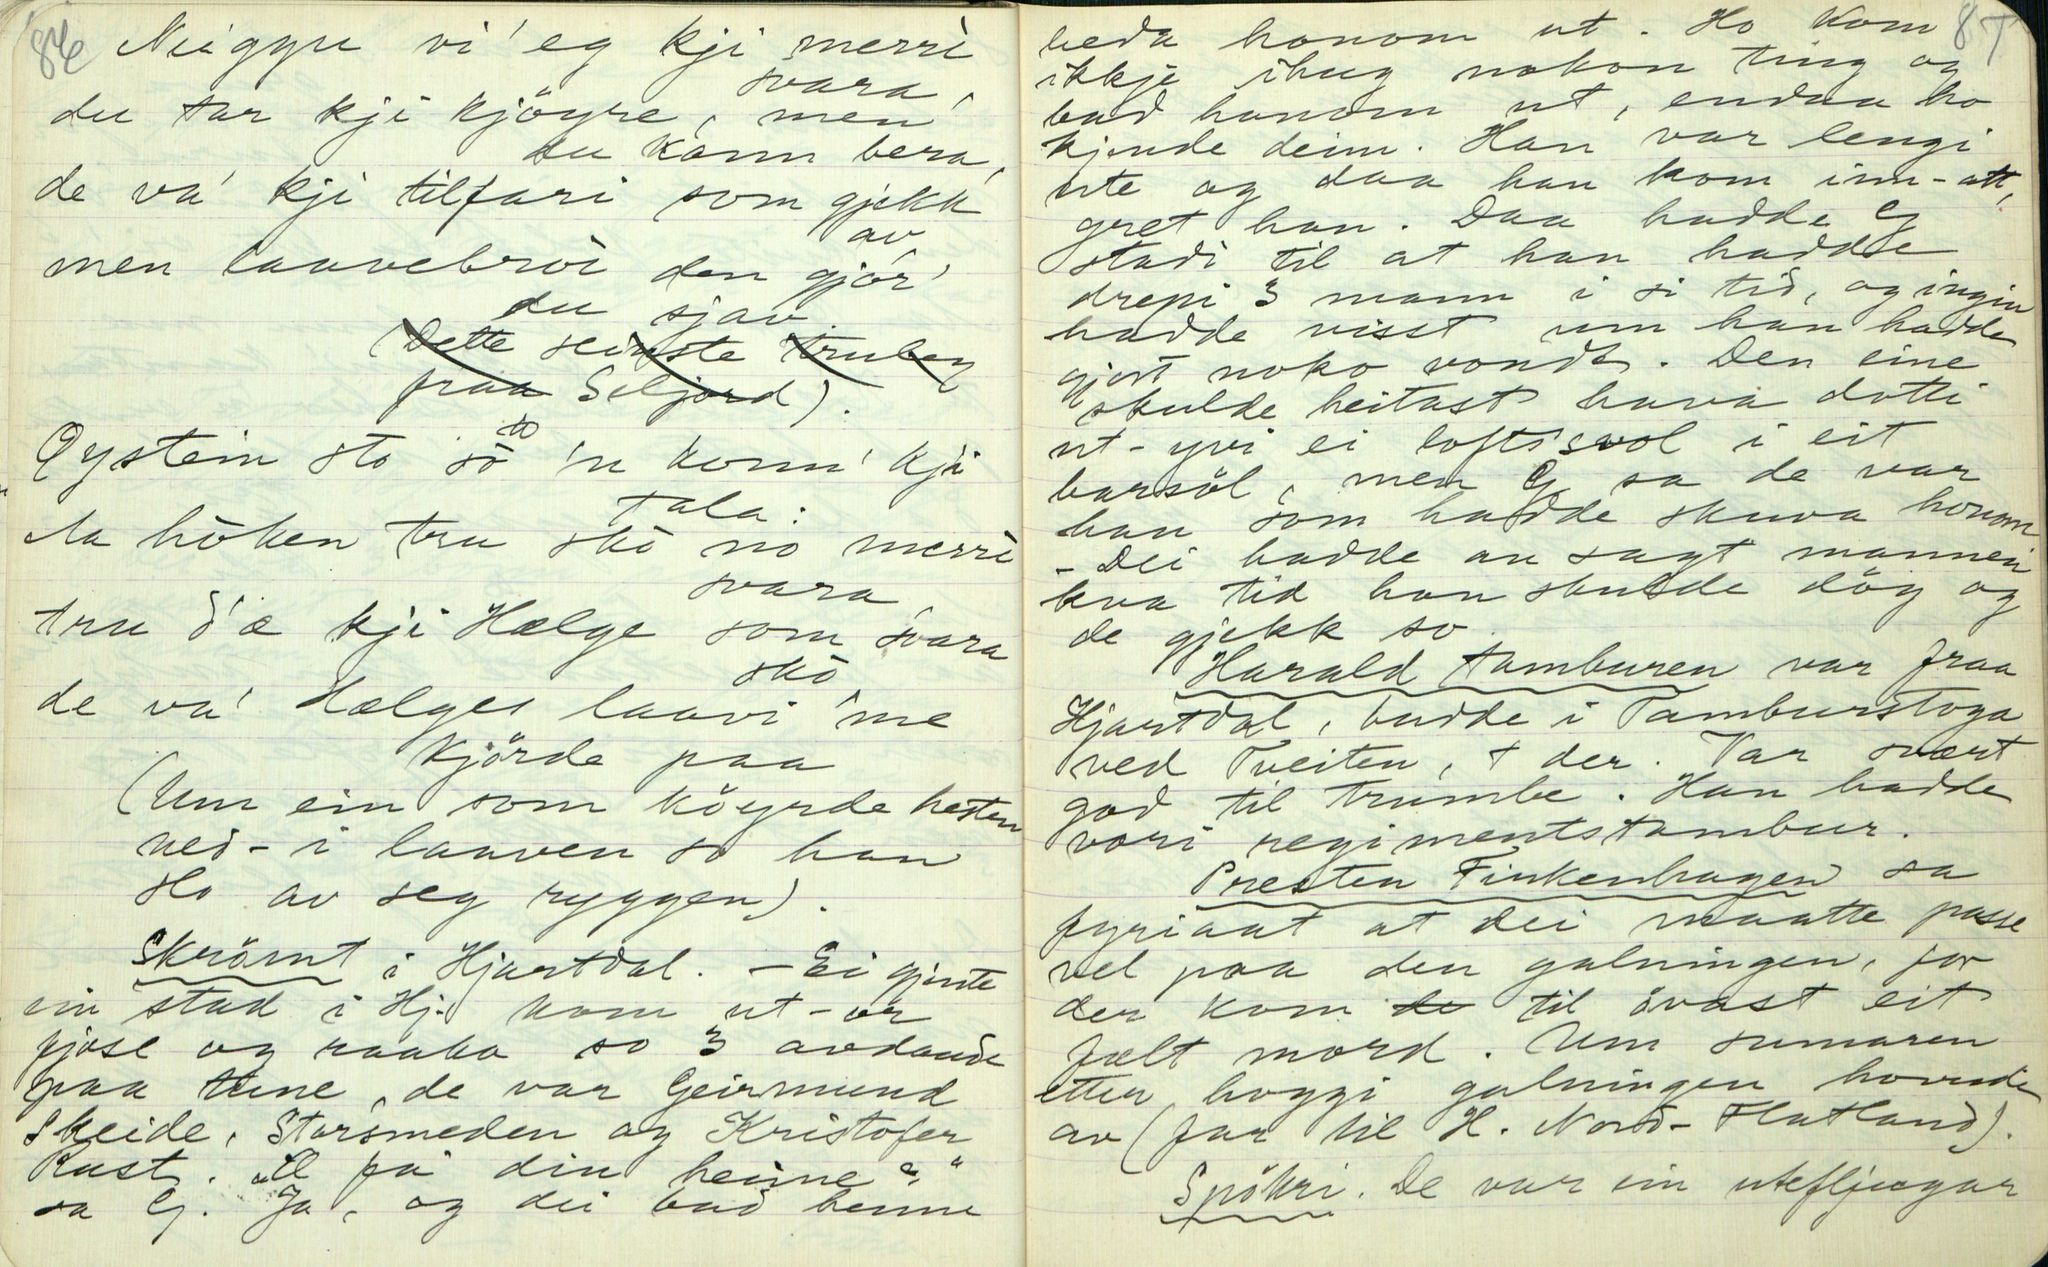 86
Neiggu vi' eg kji merri
svara,
du tar kji kjöyre, men
du kann bera,
de va' kji tilfari som gjekk
av,
men laavebroi den gjör'
du sjav
(Dette seinste truleg
fraa Seljord).
Öystein sto so 'n konn' kji
tala:
Aa höken tru sko no merri
svara,
tru d'æ kji Hælge som svara
sko
de va' Hælges laavi 'me
kjörde paa
(Um ein som köyrde hesten
ned-i laaven so han
slo av seg ryggen).
Skrömt i Hjartdal. - Ei gjente
ein stad i Hj. kom ut-or
fjose og raaka so 3 avdaude
paa tune, de var Geirmund
Skeide, Storsmeden og Kristofer
Rust. "Æ få din heime?"
sa G. Ja, og dei bad henne
87
beda honom ut. Ho kom
ikkje ihug nokon ting og
bad honom ut, endaa ho
kjende deim. Han var lengi
ute og daa han kom inn-att,
gret han. Daa hadde G
stadi til at han hadde
drepi 3 mann i si tid, og ingin
hadde visst um han hadde
gjort noko vondt. Den eine
skulde heitast hava dotti
ut-yvi ei loftssvol i eit
barsöl, men G sa de var
han som hadde skuva honom
- Dei hadde au sagt mannen
kva tid han skulde döy og
de gjekk so.
Harald tamburen var fraa
Hjartdal, budde i Tamburstoga
ved Tveiten, + der. Var svært
god til trumbe. Han hadde
vori regimentstambur.
Presten Finkenhagen sa
fyriaat at dei maatte passe
vel paa den galningen, for
der kom de til övast eit
fælt mord. Um sumaren
etter hoggi galningen hovude
av (far til H. Nord-Flatland).
Spökri. De var ein utefljugar